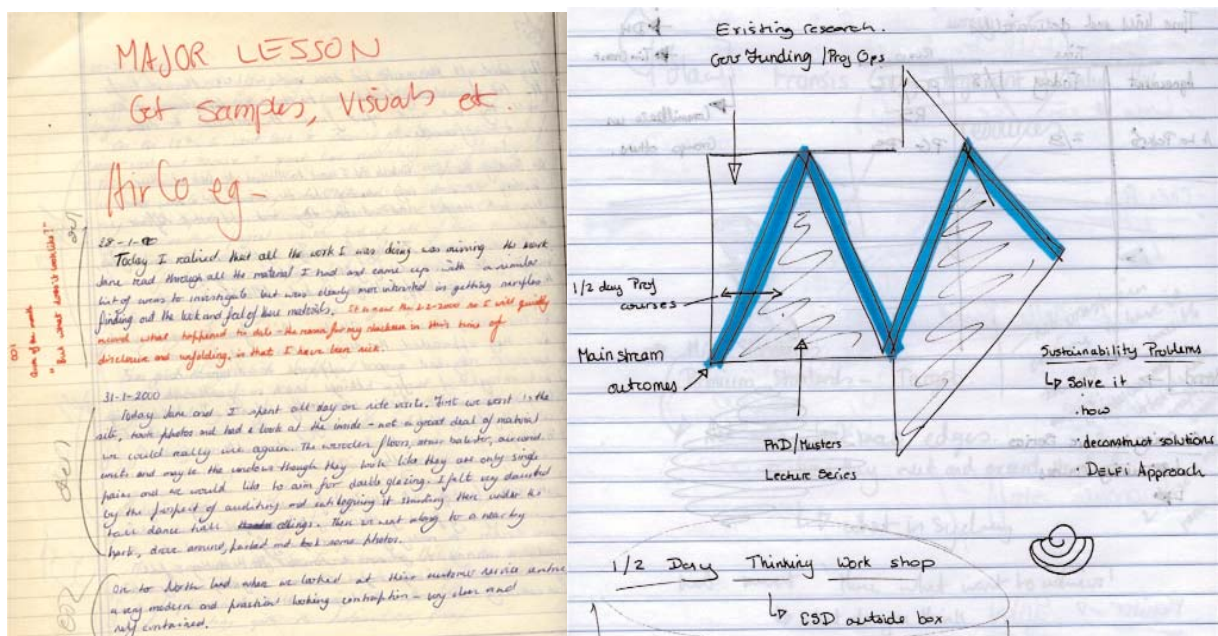 MAJOR LESSON
Get Samples, Visuals et.
AirCo eg -
"But what does it look like?"
28-1-00
Today I realised that all the work I was doing was missing the mark
Jane read through all the material I had and came up with a similar
list of areas to investigate but was clearly more interested in getting samples &
finding out the look and feel of these materials. It is now the 2-2-2000 so I will quickly
record what happened to date - the reason for my slackness in this time of
disclosure and unfolding, is that I have been sick.
31-1-2000
Today Jane and I spent all day on site visits. First we went to the
site, took photos and had a look at the inside - not a great deal of material
we could really use again. The wooden floors, some
units and maybe the windows though they look like they are only single
pane and we would like to aim for double glazing. I felt very daunted
by the prospect of auditing and cataloguing it standing there under the
dance hall ceilings. Then we went along to a nearby
park, drove around, parked and took some photos.
On to North land where we looked at their customer service centre
a very modern and practical looking contraption - very clean and
self contained.
Existing research.
Gov Funding / Proj Ops
1/2 day Prof
courses
Main stream
outcomes
PhD/Masters
Lecture Series
Sustainability Problems
↳ Solve it
· how
· deconstruct solutions
· DELFI Approach
1/2 Day Thinking Work shop
↳ ESD outside box